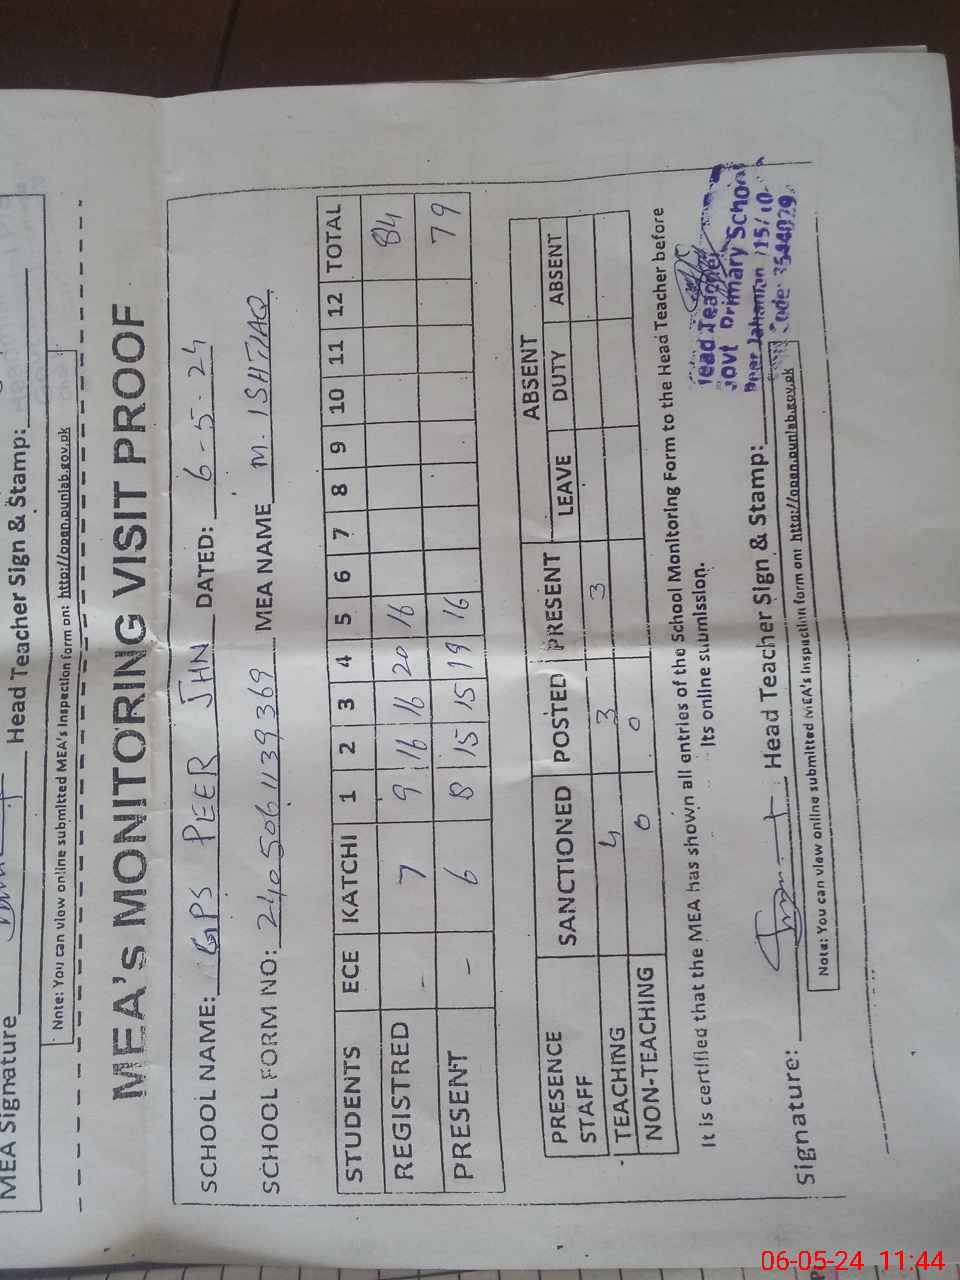 MEA Signature Head Teacher Sign & Stamp:
Note: You can view online submitted MEA's Inspection form on: http://open.punjab.gov.pk
MEA's MONITORING VISIT PROOF
SCHOOL NAME: GPS PEER JHN DATED: 6-5-24
SCHOOL FORM NO: 2405061139369 MEA NAME M. ISHTIAQ
STUDENTS ECE KATCHI 1 2 3 4 5 6 7 8 9 10 11 12 TOTAL
REGISTRED - 7 9 16 16 20 16 84
PRESENT - 6 8 15 15 19 16 79
PRESENCE STAFF SANCTIONED POSTED PRESENT ABSENT
LEAVE DUTY ABSENT
TEACHING 4 3 3
NON-TEACHING 0 0
It is certified that the MEA has shown all entries of the School Monitoring Form to the Head Teacher before
Its online sumission.
Head Teacher
Govt Primary School
Peer Jahanian 115/10-
Code: 3544029
Signature: Head Teacher Sign & Stamp:
Note: You can view online submitted MEA's Inspection form on: http://open.punjab.gov.pk
06-05-24 11:44